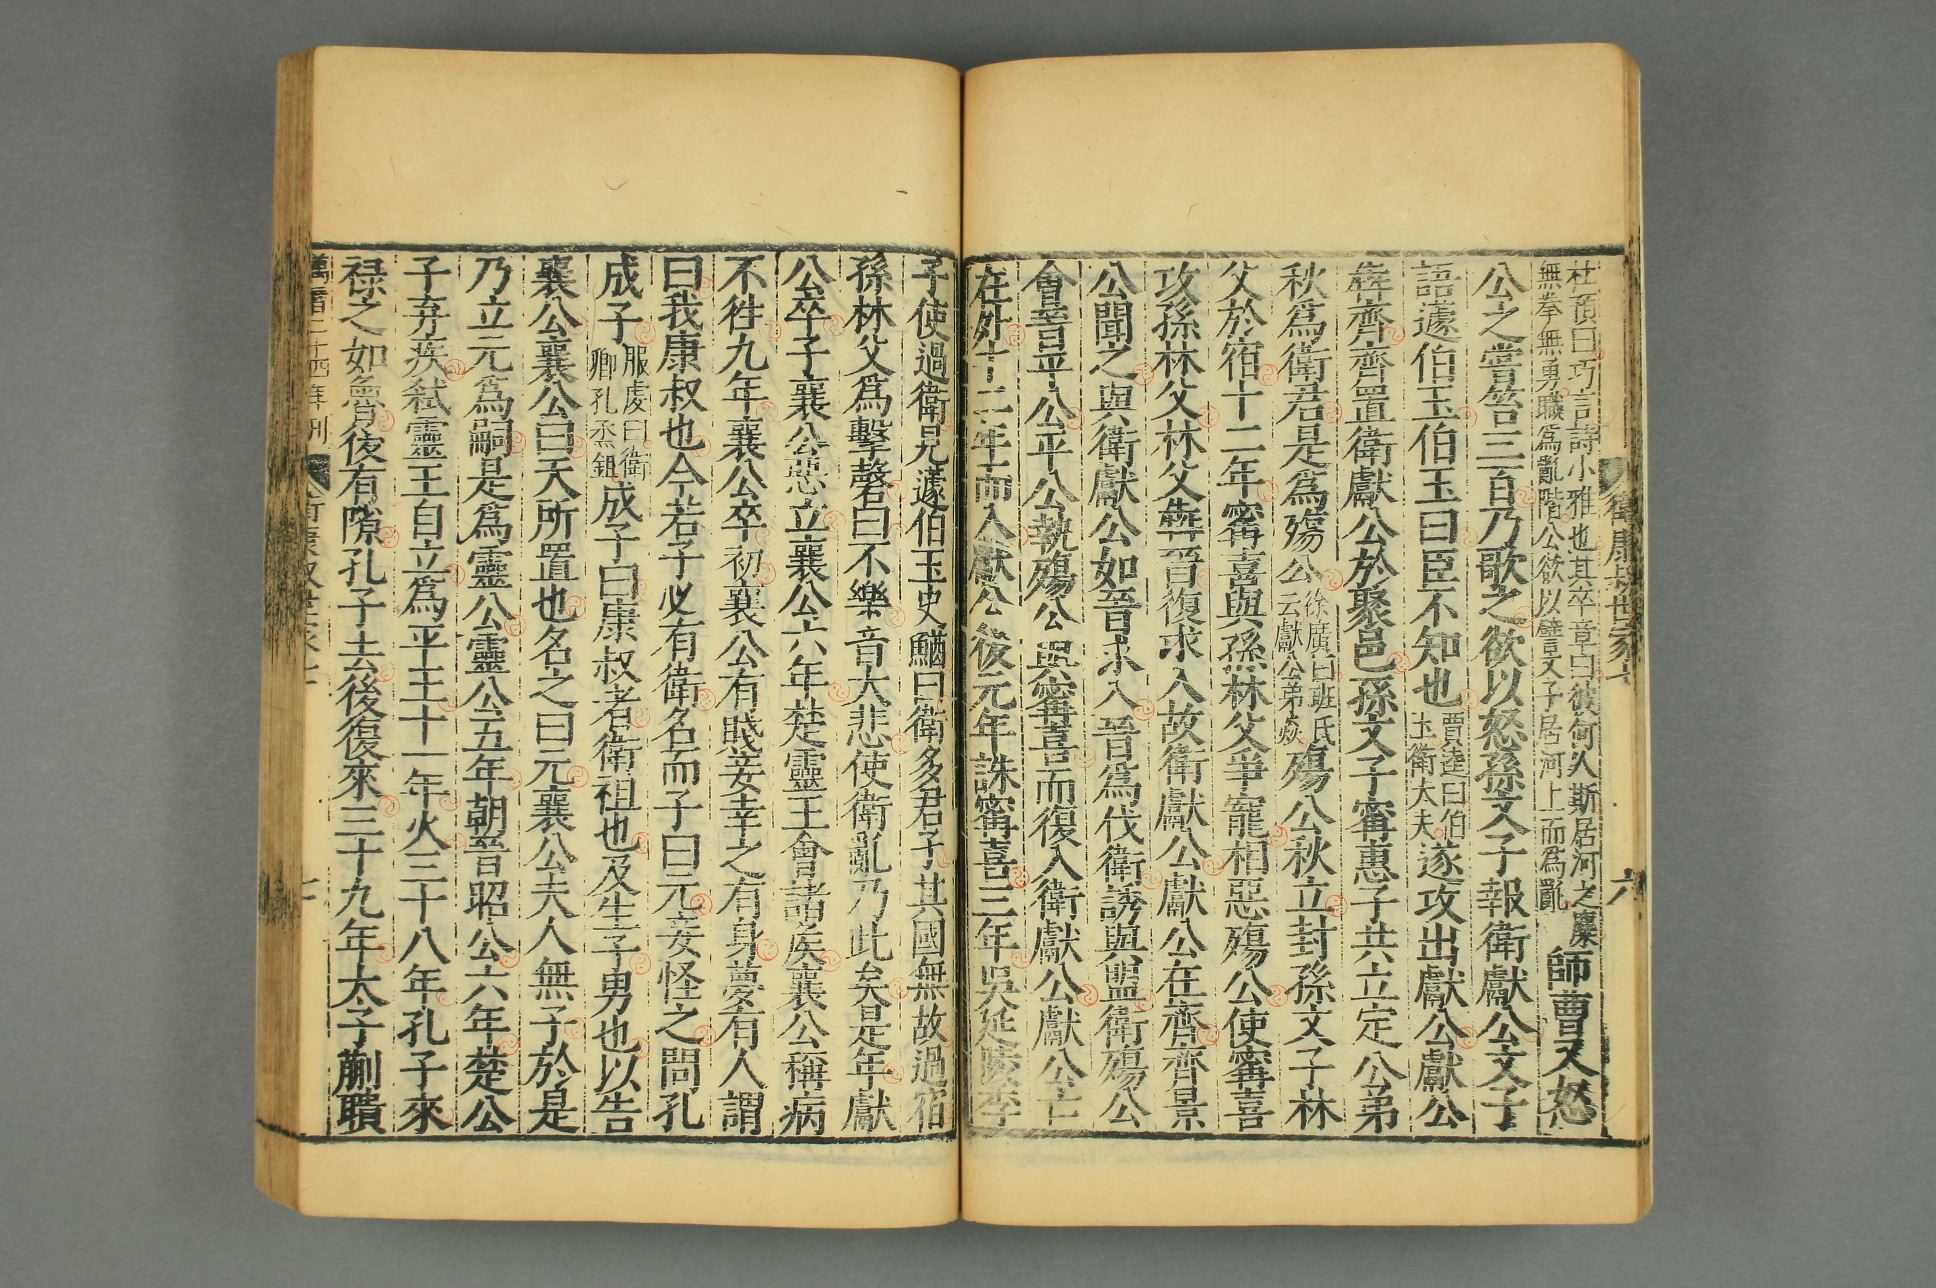 衛康叔世家七
六
杜預曰巧言詩小雅也其卒章曰彼何人斯居河之麋
無拳無勇職爲亂階公欲以譬文子居河上而爲亂
師曹又怒
公之嘗笞三百乃歌之欲以怒孫文子報衛獻公文子
語蘧伯玉伯玉曰臣不知也
賈逵曰伯
玉衛大夫
遂攻出獻公獻公
犇齊齊置衛獻公於聚邑孫文子甯惠子共立定公弟
秋爲衛君是爲殤公
徐廣曰班氏
云獻公弟焱
殤公秋立封孫文子林
父於宿十二年甯喜與孫林父爭寵相惡殤公使甯喜
攻孫林父林父犇晉復求入故衛獻公獻公在齊齊景
公聞之與衛獻公如晉求入晉爲伐衛誘與盟衛殤公
會晉平公平公執殤公與甯喜而復入衛獻公獻公亡
在外十二年而入獻公後元年誅甯喜三年吳延陵季
子使過衛見蘧伯玉史鰌曰衛多君子其國無故過宿
孫林父爲擊磬曰不樂音大悲使衛亂乃此矣是年獻
公卒子襄公惡立襄公六年楚靈王會諸侯襄公稱病
不徃九年襄公卒初襄公有賤妾幸之有身夢有人謂
曰我康叔也令若子必有衛名而子曰元妾怪之問孔
成子
服虔曰衛
卿孔烝鉏
成子曰康叔者衛祖也及生子男也以告
襄公襄公曰天所置也名之曰元襄公夫人無子於是
乃立元爲嗣是爲靈公靈公五年朝晉昭公六年楚公
子弃疾弒靈王自立爲平王十一年火三十八年孔子來
禄之如魯後有隙孔子去後復來三十九年太子蒯聵
萬曆二十四年刊
衛康叔世家七
七